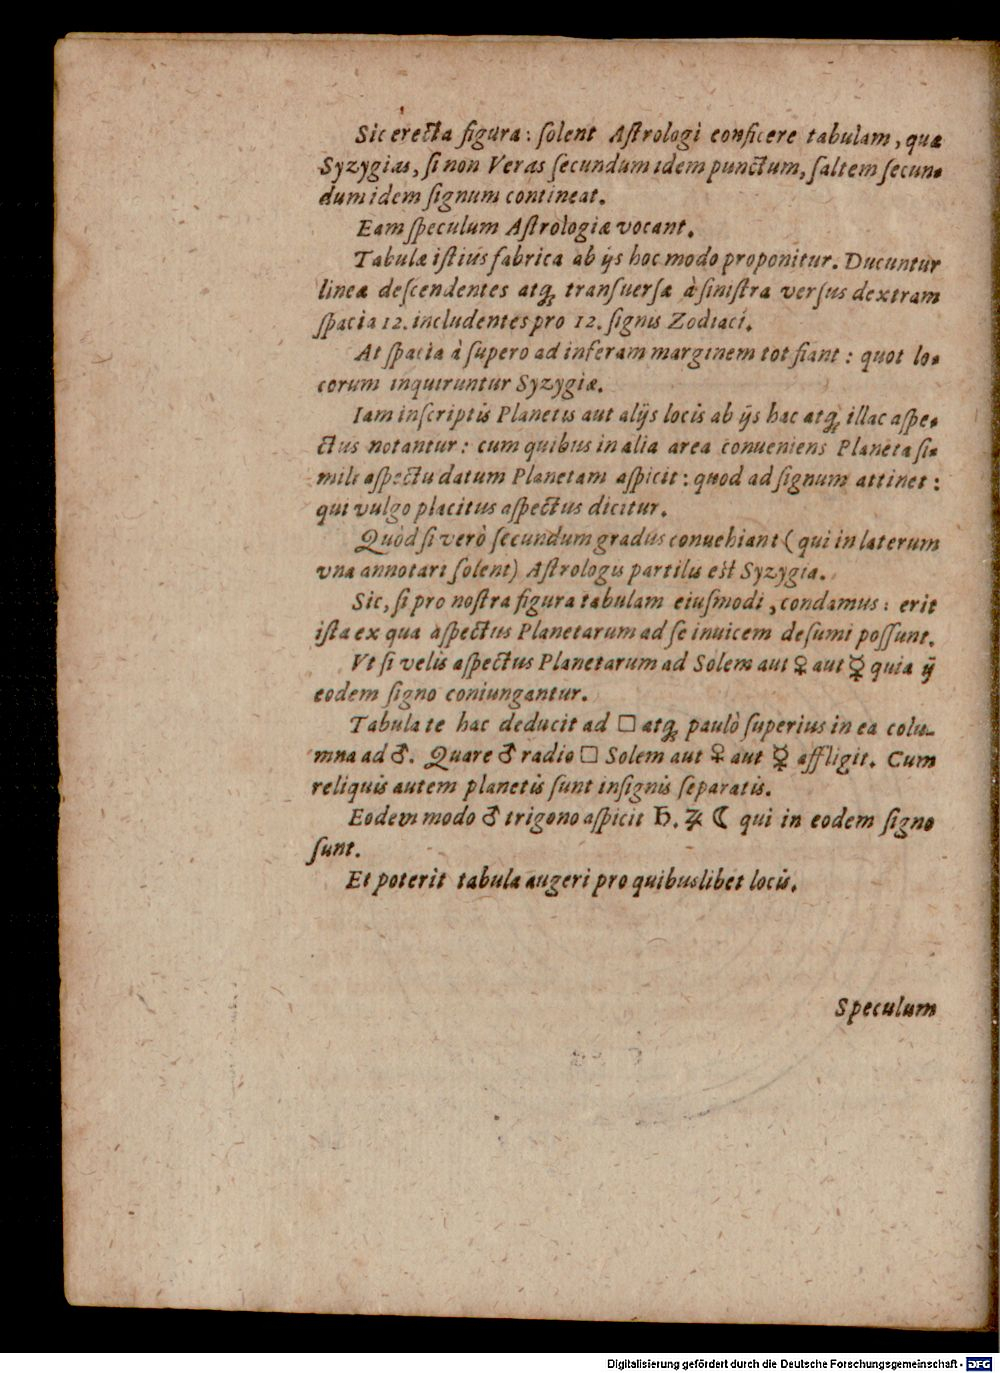 Sic erecta figura: ſolent Aſtrologi conficere tabulam, quæ
Syzygias, ſi non Veras ſecundum idem punctum, ſaltem ſecun-
dum idem ſignum contineat.
Eam ſpeculum Aſtrologiæ vocant.
Tabulæ iſtius fabrica ab ijs hoc modo proponitur. Ducuntur
lineæ deſcendentes atq; tranſuerſæ à ſiniſtra verſus dextram
ſpacia 12. includentes pro 12. ſignis Zodiaci.
At ſpatia à ſupero ad inferam marginem tot fiant: quot lo-
corum inquiruntur Syzygiæ.
Iam inſcriptis Planetis aut alijs locis ab ijs hac atq; illac aſpe-
ctus notantur: cum quibus in alia area conueniens Planeta ſi-
mili aſpectu datum Planetam aſpicit: quod ad ſignum attinet:
qui vulgo placitus aſpectus dicitur.
Quòd ſi verò ſecundum gradus conuehiant (qui in laterum
vna annotari ſolent) Aſtrologis partilis est Syzygia.
Sic, ſi pro noſtra figura tabulam eiuſmodi, condamus: erit
iſta ex qua aſpectus Planetarum ad ſe inuicem deſumi poſſunt.
Vt ſi velis aſpectus Planetarum ad Solem aut ♀ aut ☿ quia ij
eodem ſigno coniungantur.
Tabula te hac deducit ad □ atq; paulò ſuperius in ea colu-
mna ad ♂. Quare ♂ radio □ Solem aut ♀ aut ☿ affligit. Cum
reliquis autem planetis ſunt inſignis ſeparatis.
Eodem modo ♂ trigono aſpicit ♄. ♃ ☾ qui in eodem ſigno
ſunt.
Et poterit tabula augeri pro quibuslibet locis.
Speculum
Digitalisierung gefördert durch die Deutsche Forschungsgemeinschaft - DFG